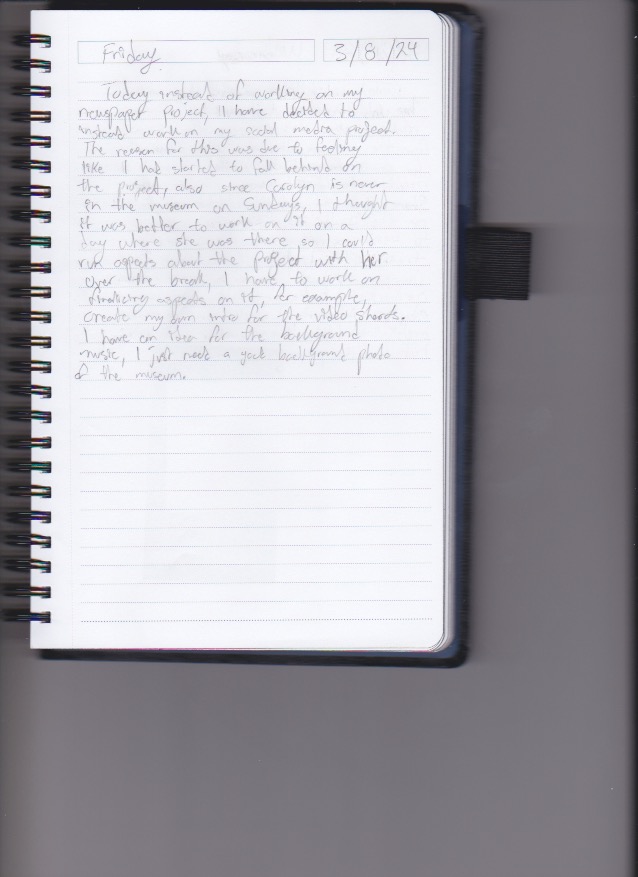 Friday 3/8/24
Today instead of working on my
newspaper project, I have decided to
instead work on my social media project.
The reason for this was due to feeling
like I had started to fall behind on
the project, also since Carolyn is never
in the museum on Sundays, I thought
it was better to work on it on a
day where she was there, so I could
run aspects about the project with her
over the break, I have to work on
finalizing aspects on it, for example,
create my own intro for the video shorts.
I have an idea for the background
music, I just need a good background photo
of the museum.